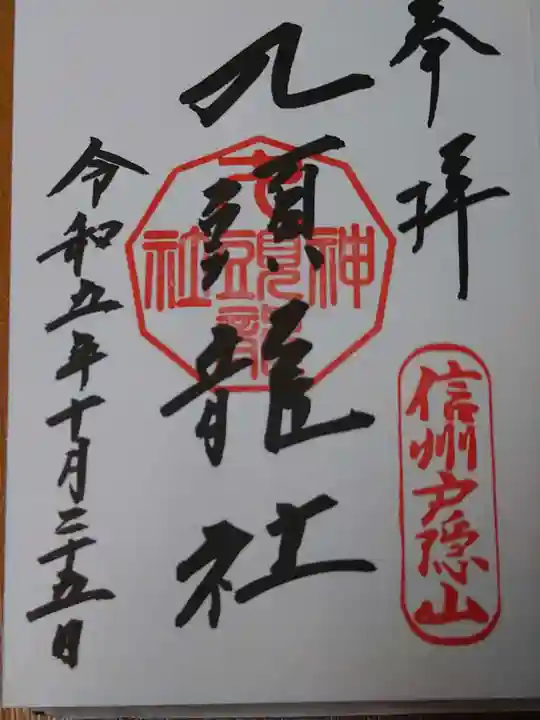 奉拝
信州戸隠山
九頭龍社
九頭龍
神社
令和五年十月二十五日